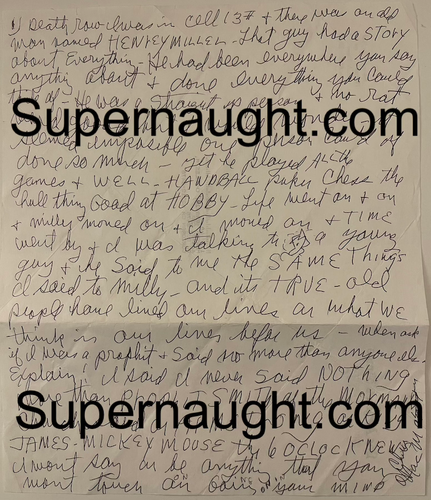 Death row I was in cell 13# & there was an old
man named HENRY MILLER - that guy had a STORY
about Everything - He had been everywhere you say
anything about & done everything you could
He was a straight person & no rat
Supernaught.com
seemed impossible one could of
done so much - yet he played ALL the
games & WELL - HANDBALL poker Chess the
hull thing Good at HOBBY - Life went on & on
& Milly moved on & it moved on & TIME
went by & I was talking to a young
guy & he Said to me the SAME things
I said to Milly - and its TRUE - old
people have lived our lives or what WE
think is our lives before us - when ask
if I was a prophit & Said no more than anyone else
Explain, I said I never said NOTHING
more than
Supernaught.com
JAMES - MICKEY MOUSE 6 OCLOCK NEWS
I wont say or be anything that
wont touch your MIND